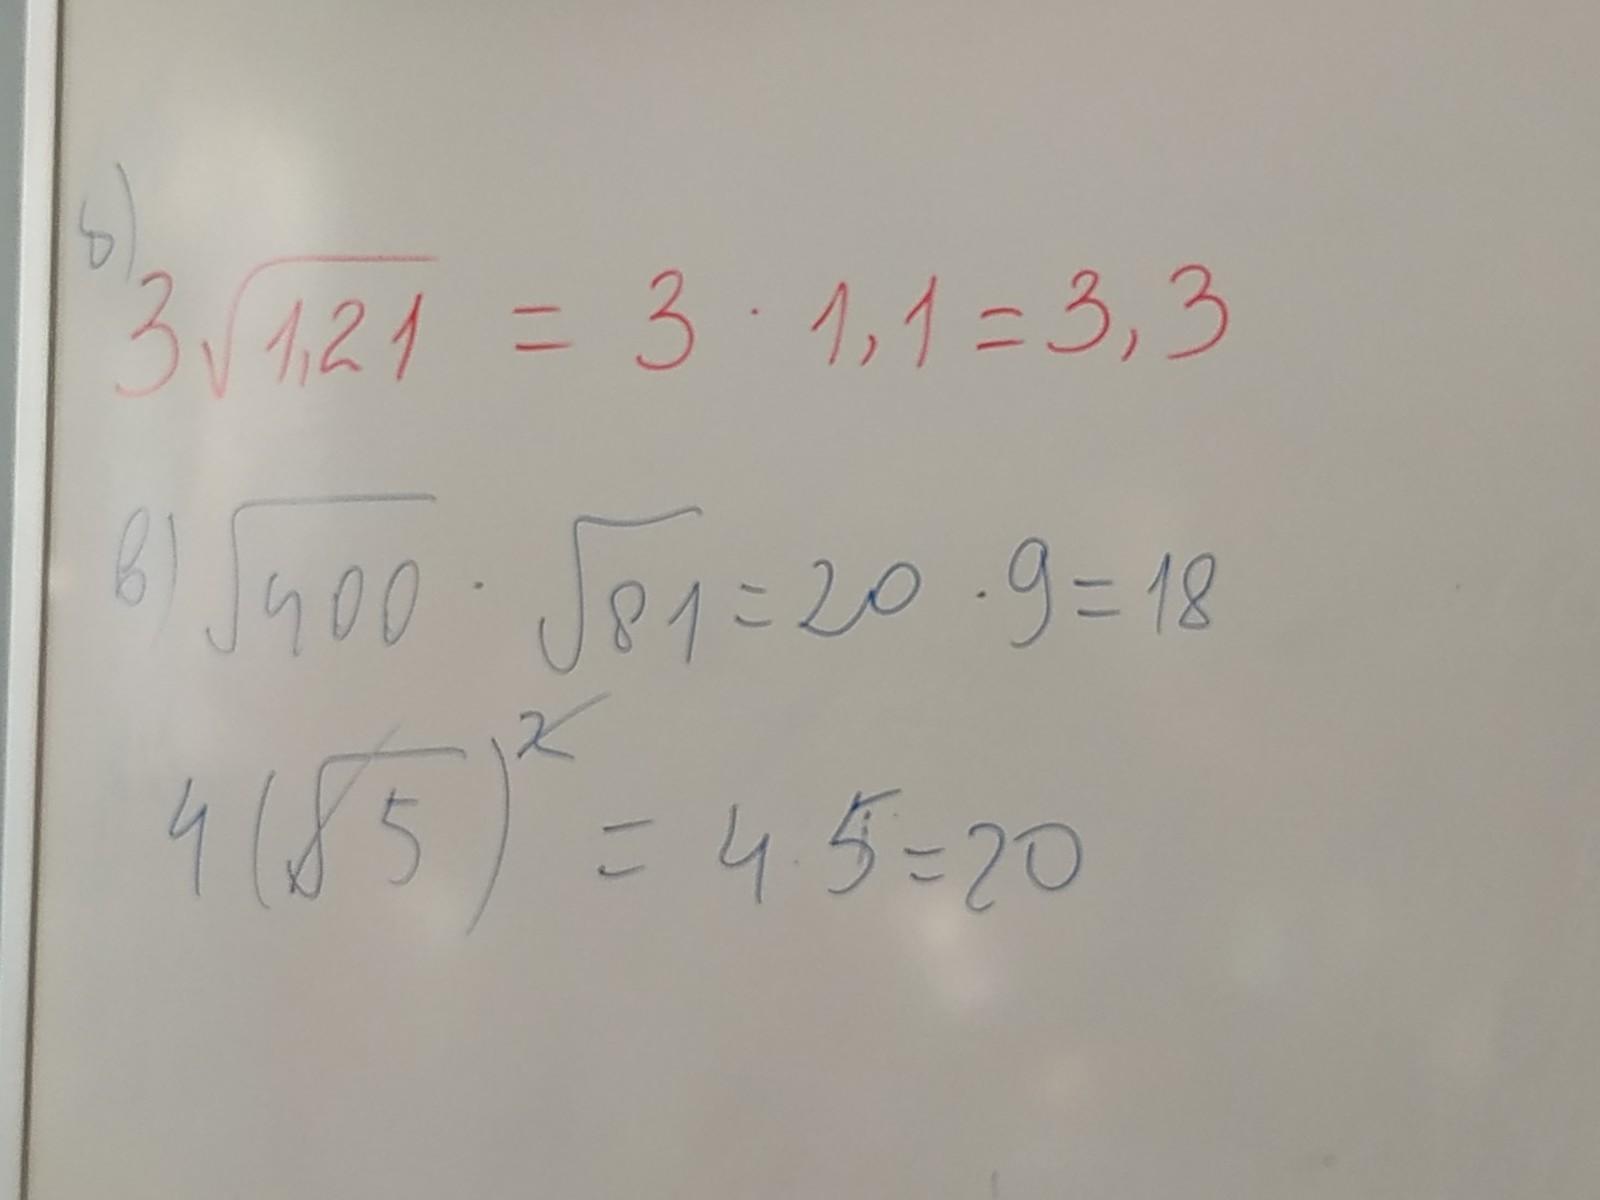 б)
3√1,21 = 3 · 1,1 = 3,3
в) √400 · √81 = 20 · 9 = 18
4(√5)² = 4 · 5 = 20